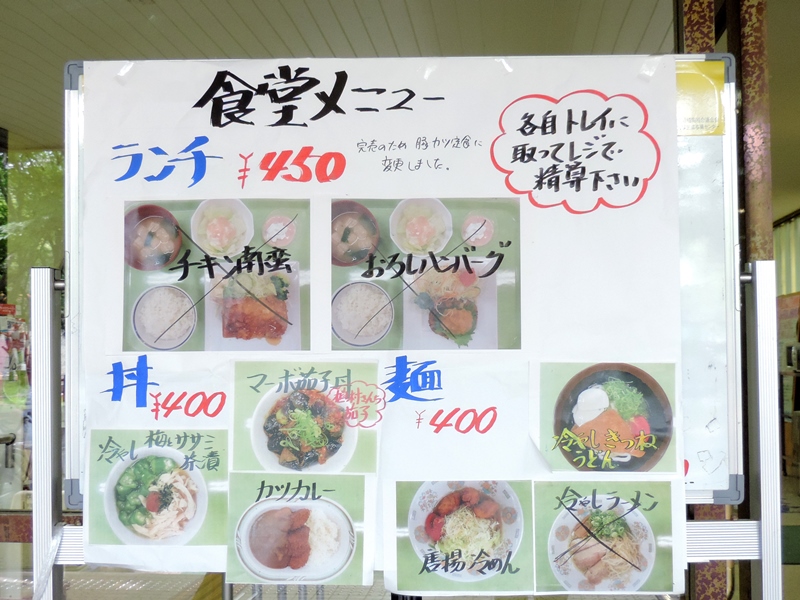 食堂メニュー
各自トレイに
取ってレジで
精算下さい
ランチ ¥450
完売のため 豚カツ定食に
変更しました。
チキン南蛮
おろしハンバーグ
丼 ¥400
マーボ茄子丼
冷やし 梅しササミ
茶漬
カツカレー
麺 ¥400
冷やしきつね
うどん
唐揚冷めん
冷やしラーメン